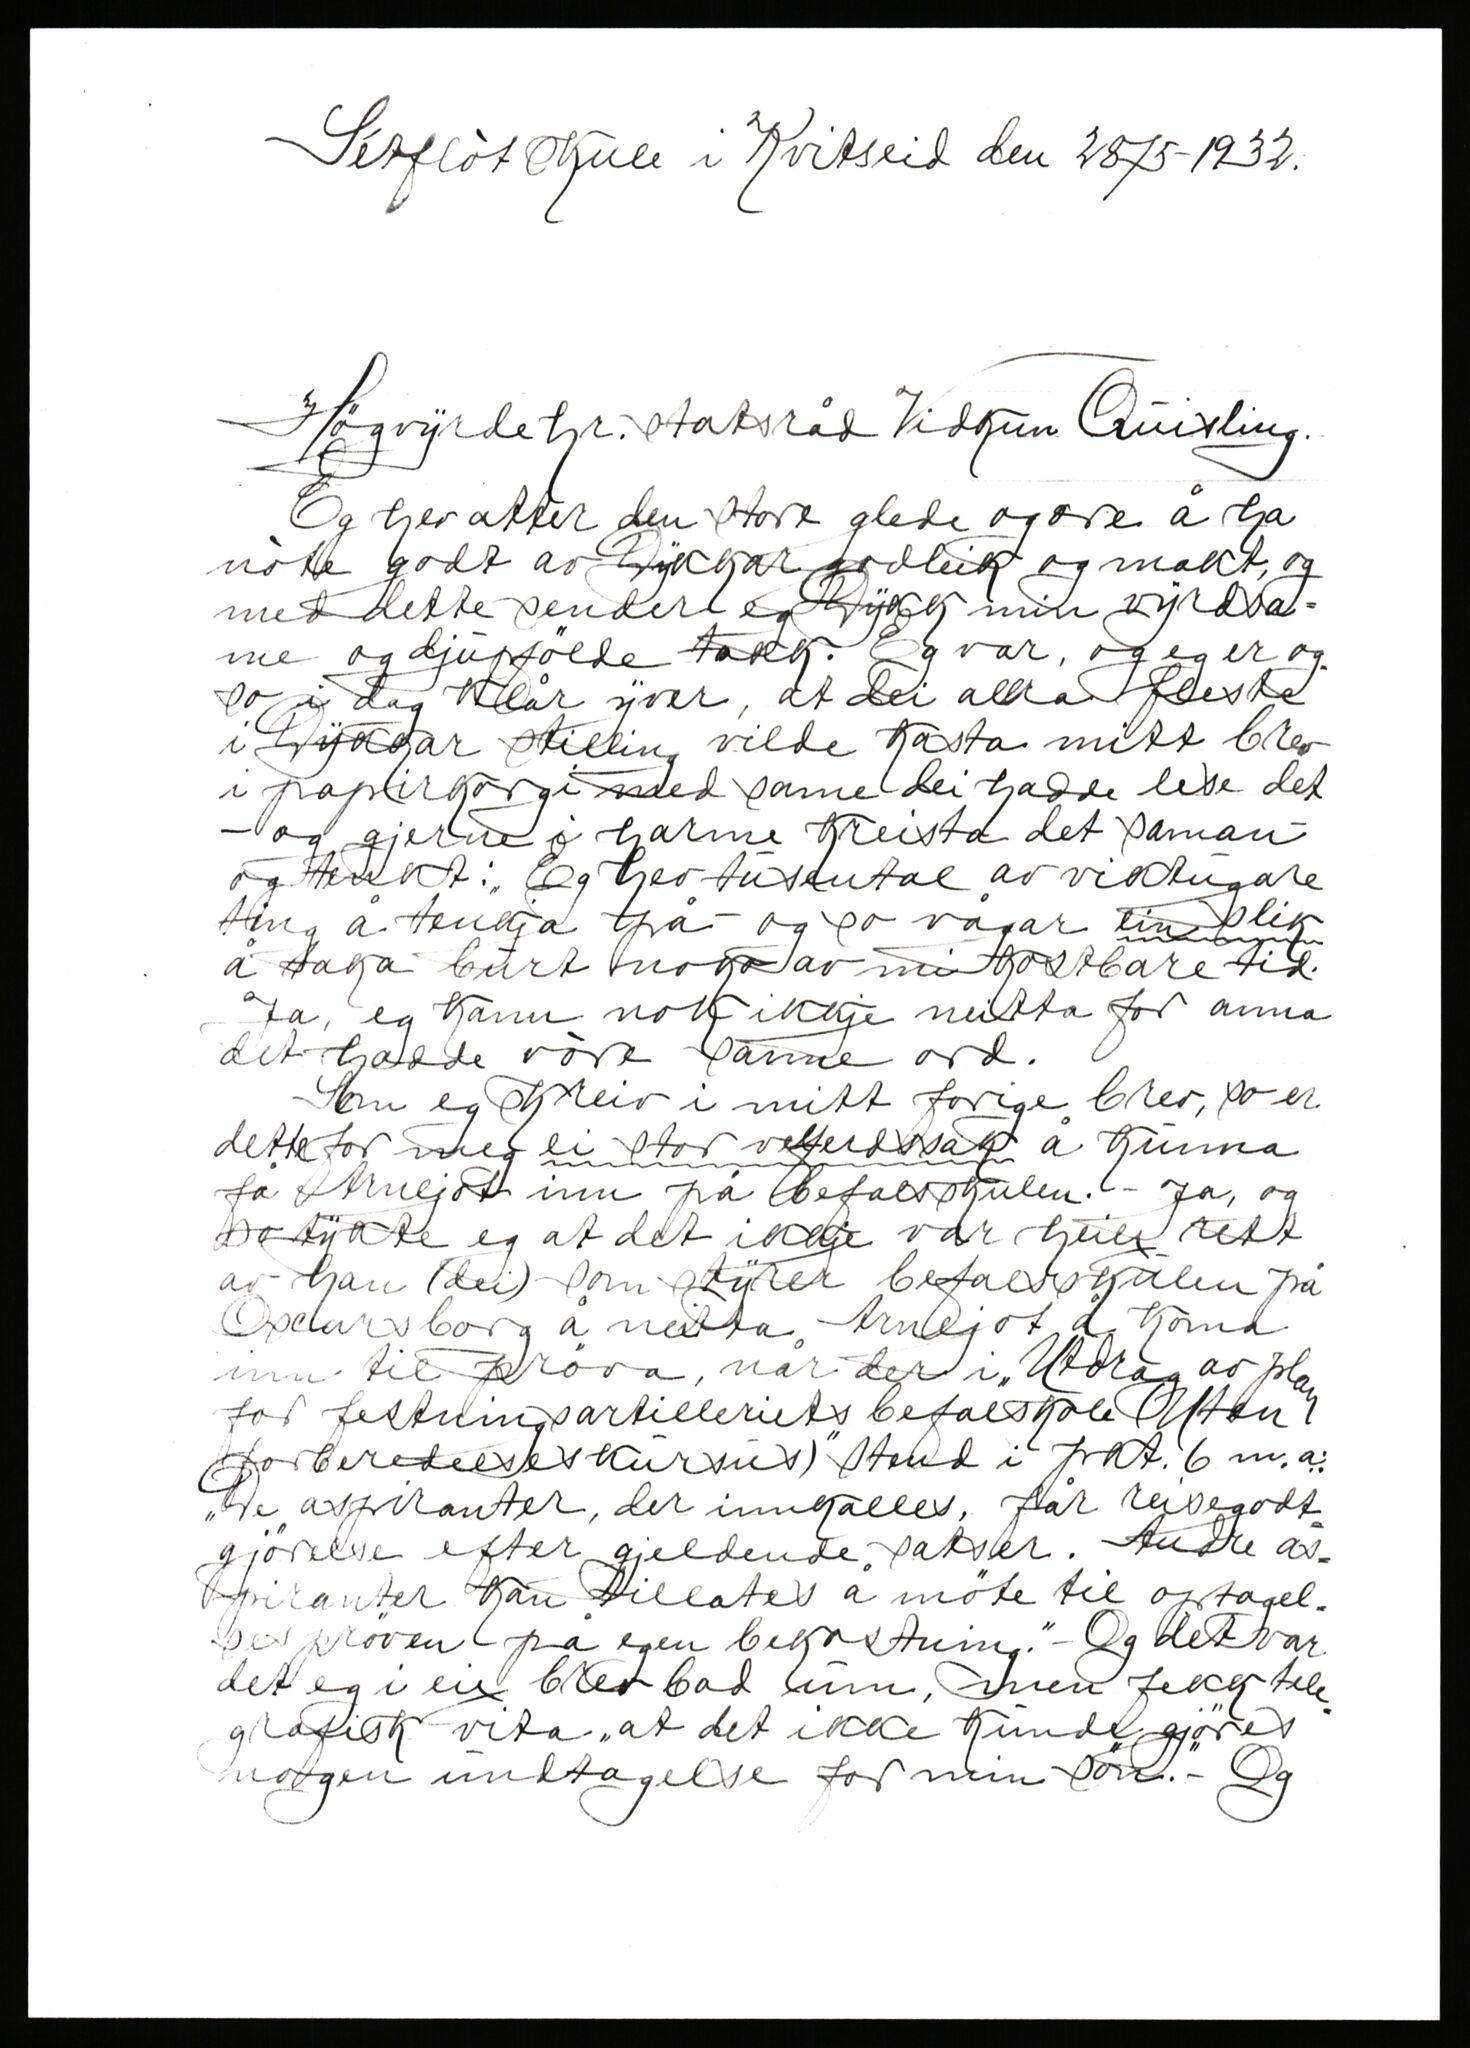 Sètflòt skule i Kvitseid den 28/5-1932.
Högvyrde hr. statsråd Vidkun Quisling.
Eg hev atter den store glede og ære å ha
nòte godt av Dykkar godleik og makt, og
med dette sender eg Dykk min vyrdsa-
me og djupfölde takk. Eg var, og eg er og-
so i dag klår yver, at dei allra fleste
i Dykkar stilling vilde kasta mitt brev
i papirkorgi med same dei hadde lese det
- og gjerne i harme kreista det saman
og tenkt: „Eg hev tusental av viktugare
ting å tenkja på - og so vågar ein slik
å taka burt noko av mi kostbare tid.
Ja, eg kann nok ikkje neitta for anna
det hadde vòre sanne ord.
Som eg skreiv i mitt forige brev, so er
dette for meg ei stor velferdssak å kunna
få Arnljot inn på befalsskulen. - Ja, og
so tykte eg at det ikkje var heilt rett
av han (dei) som styrer befalsskulen på
Oscarsborg å neitta Arnljot å koma
inn til pröva, når der i „Utdrag av plan
for festningsartilleriets befalskole (Uten
forberedelseskursus)" stend i pkt. 6 m.a:
„De aspiranter, der innkalles, får reisegodt-
gjörelse efter gjeldende satser. Andre as-
piranter kan tillates å möte til optagel-
sespröven på egen bekostning." - Og det var
det eg i eit brev bad um, men fekk tele-
grafisk vita „at det ikke kunde gjöres
nogen undtagelse for min sön." - Og